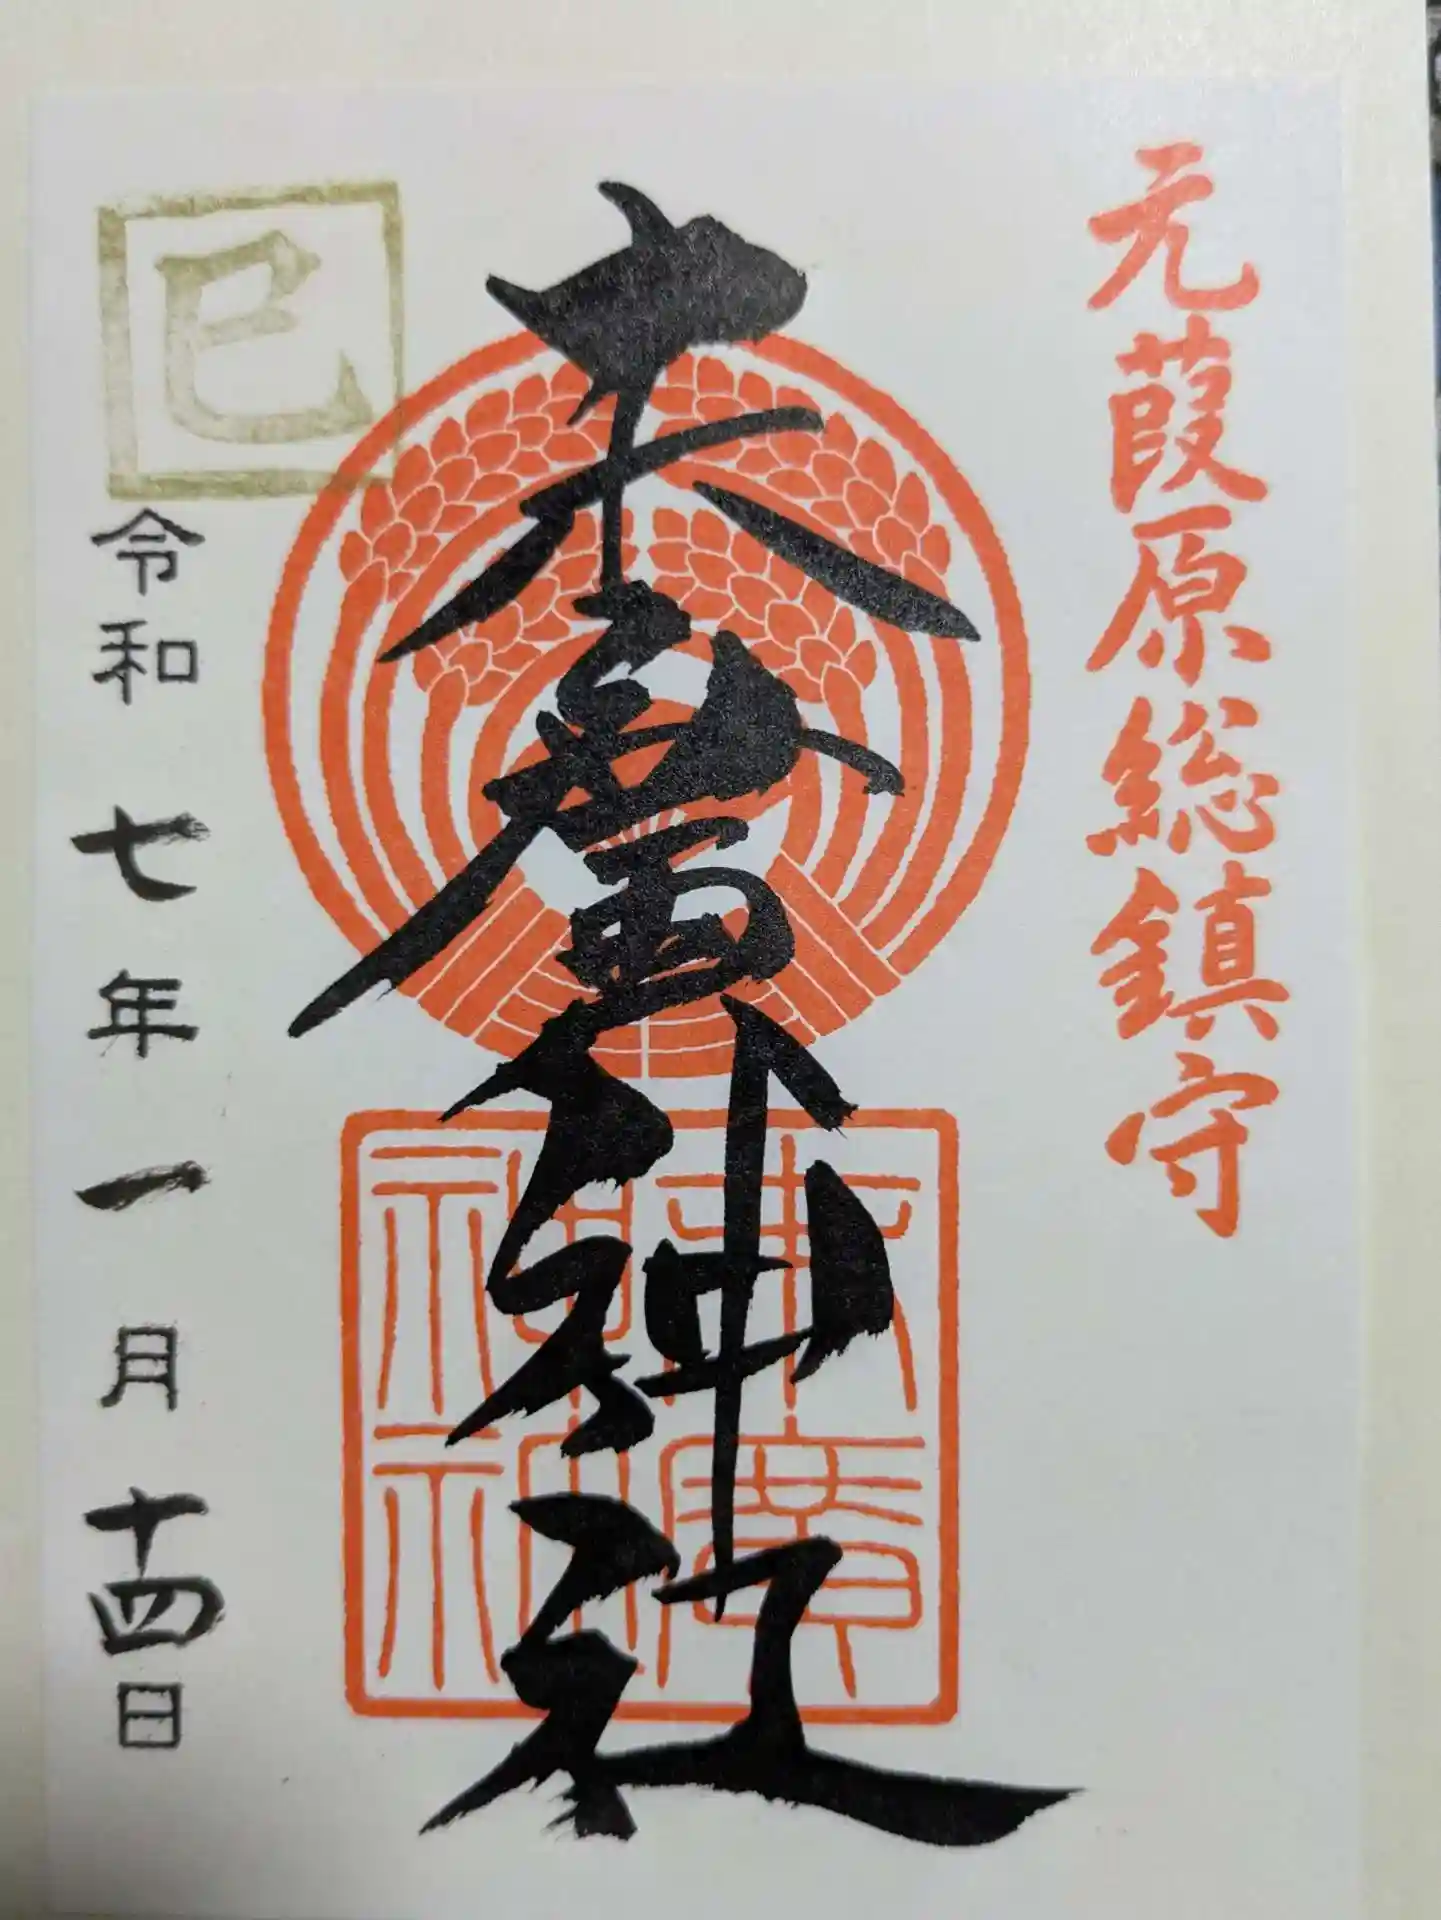 元葭原総鎮守
末廣神社
末廣
神社
巳
令和七年一月十四日